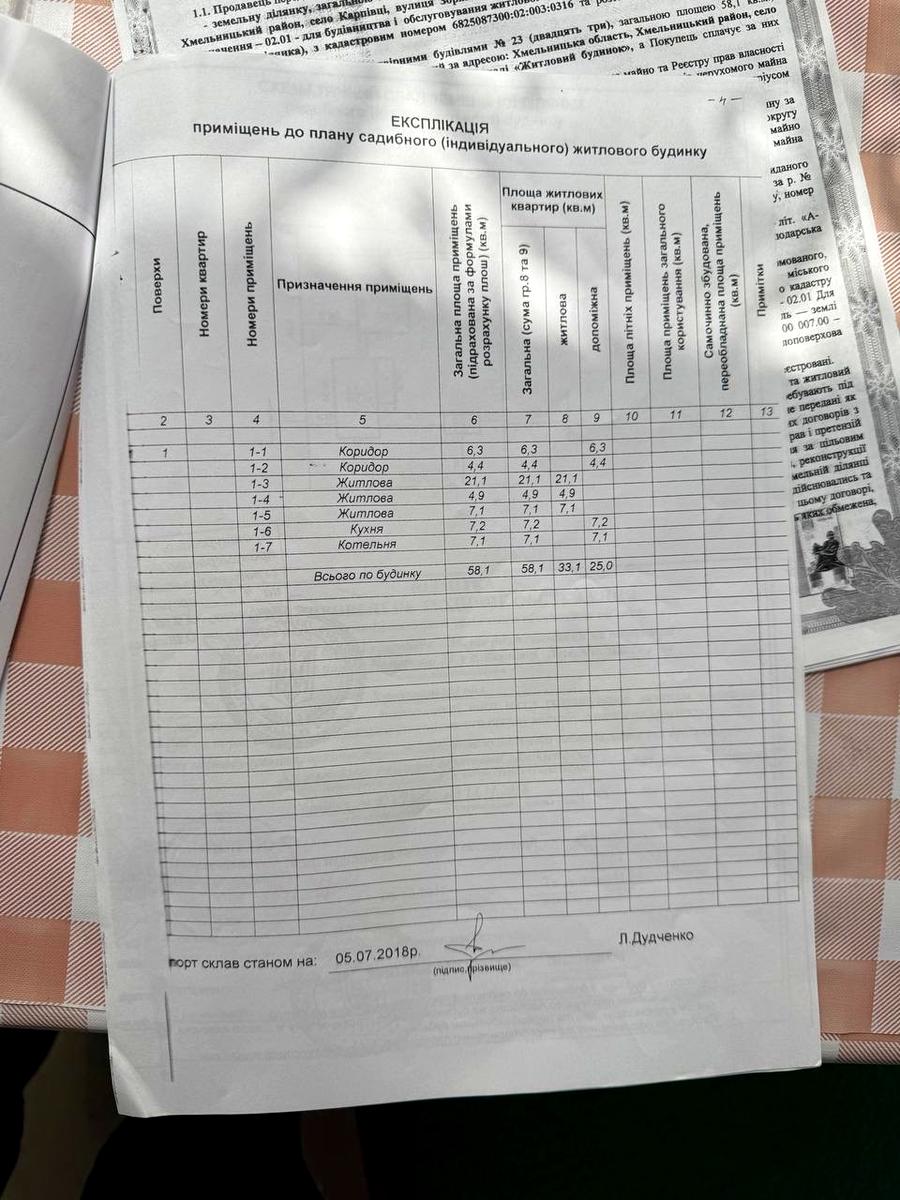 1.1. Продавець
- земельну ділянку,
Хмельницький район, село Карпівці, вулиця
– 02.01 - для будівництва і обслуговування
з кадастровим номером 6825087300:02:003:0316 та
будівлями № 23 (двадцять три), загальною площею 58,1
за адресою: Хмельницька область, Хмельницький район, село
«Житловий будинок», а Покупець сплачує за них
майно та Реєстру прав власності
нерухомого майна
- 4 -
ЕКСПЛІКАЦІЯ
приміщень до плану садибного (індивідуального) житлового будинку
Поверхи
Номери квартир
Номери приміщень
Призначення приміщень
Загальна площа приміщень
(підрахована за формулами
розрахунку площ) (кв.м)
Площа житлових
квартир (кв.м)
Загальна (сума гр.8 та 9)
житлова
допоміжна
Площа літніх приміщень (кв.м)
Площа приміщень загального
користування (кв.м)
Самочинно збудована,
переобладнана площа приміщень
(кв.м)
Примітки
2 3 4 5 6 7 8 9 10 11 12 13
1 1-1 Коридор 6,3 6,3 6,3
1-2 Коридор 4,4 4,4 4,4
1-3 Житлова 21,1 21,1 21,1
1-4 Житлова 4,9 4,9 4,9
1-5 Житлова 7,1 7,1 7,1
1-6 Кухня 7,2 7,2 7,2
1-7 Котельня 7,1 7,1 7,1
Всього по будинку 58,1 58,1 33,1 25,0
порт склав станом на: 05.07.2018р. Л.Дудченко
(підпис,прізвище)
ну за
округу
майно
майна
виданого
за р. №
у, номер
літ. «А-
міського
о кадастру
- 02.01 Для
ль — землі
00 007.00 –
та житловий
не передані як
их договорів з
рав і претензій
я за цільовим
, реконструкції
дійснювались та
цьому договорі,
яких обмежена,